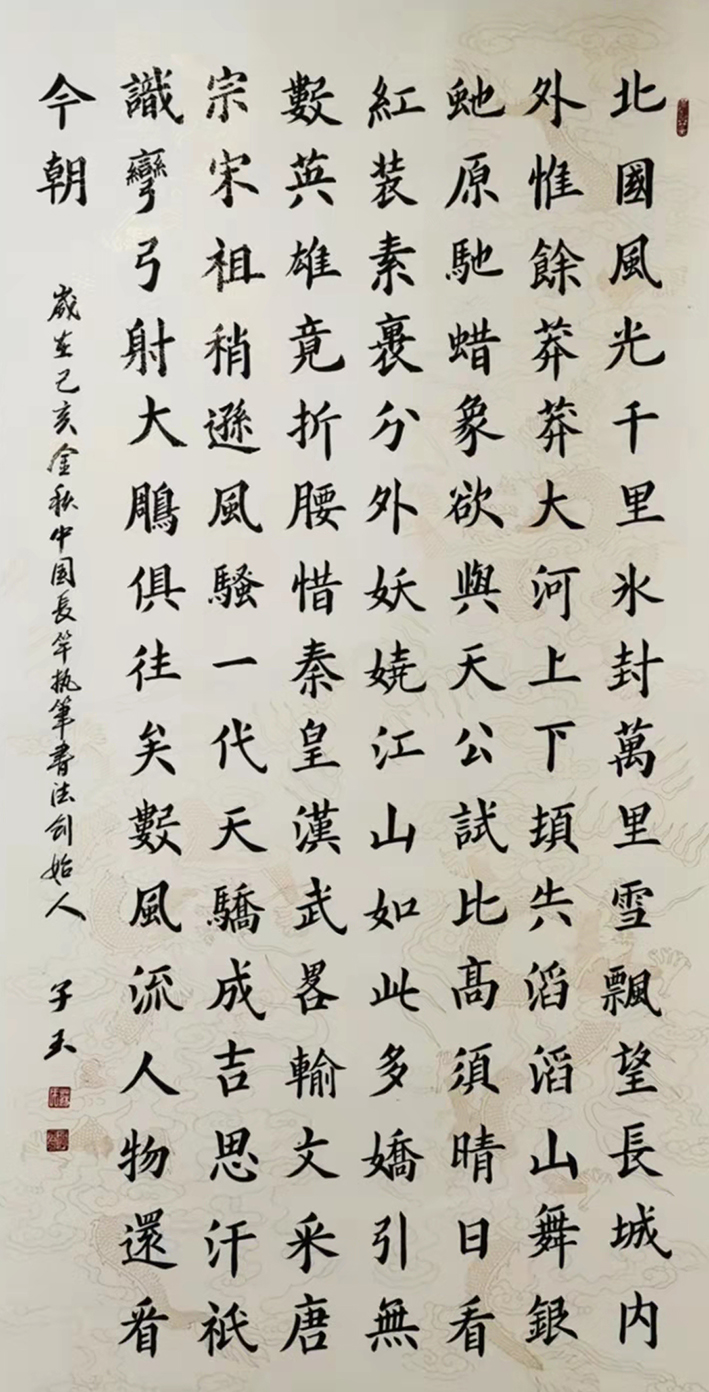 北國風光千里氷封萬里雪飄望長城内
外惟餘莽莽大河上下頃失滔滔山舞銀
虵原馳蜡象欲與天公試比高須晴日看
紅装素裹分外妖娆江山如此多嬌引無
數英雄竟折腰惜秦皇漢武畧輸文采唐
宗宋祖稍遜風騷一代天驕成吉思汗祇
識彎弓射大鵰俱往矣數風流人物還看
今朝
歲在己亥金秋中国長竿执筆書法创始人 子玉